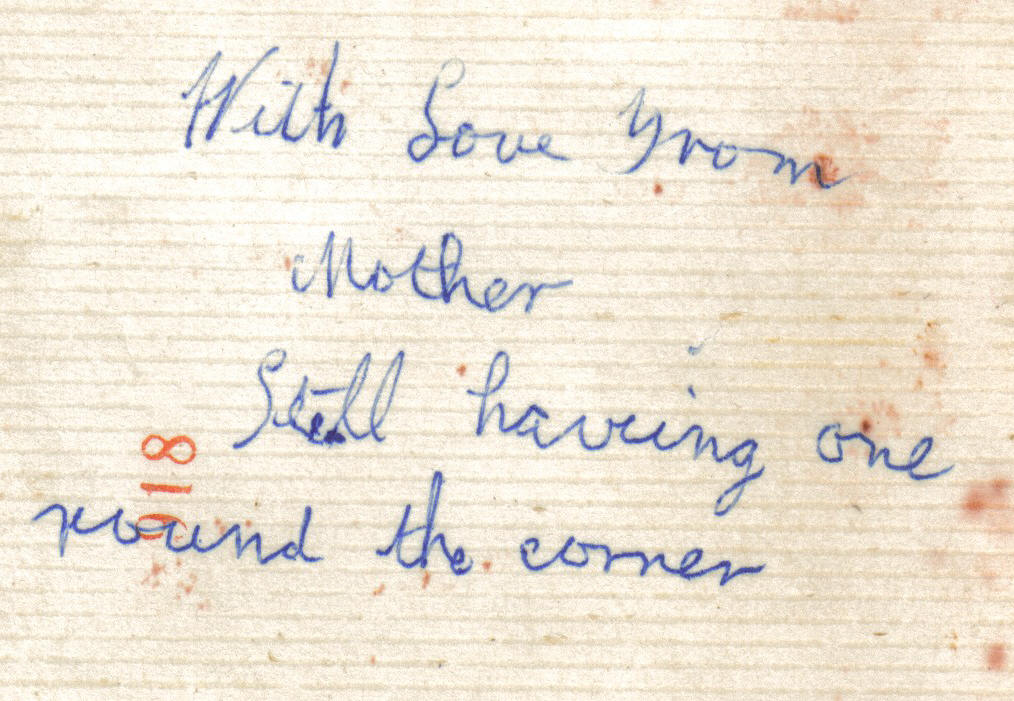 With Love From
Mother
Still having one
round the corner
918